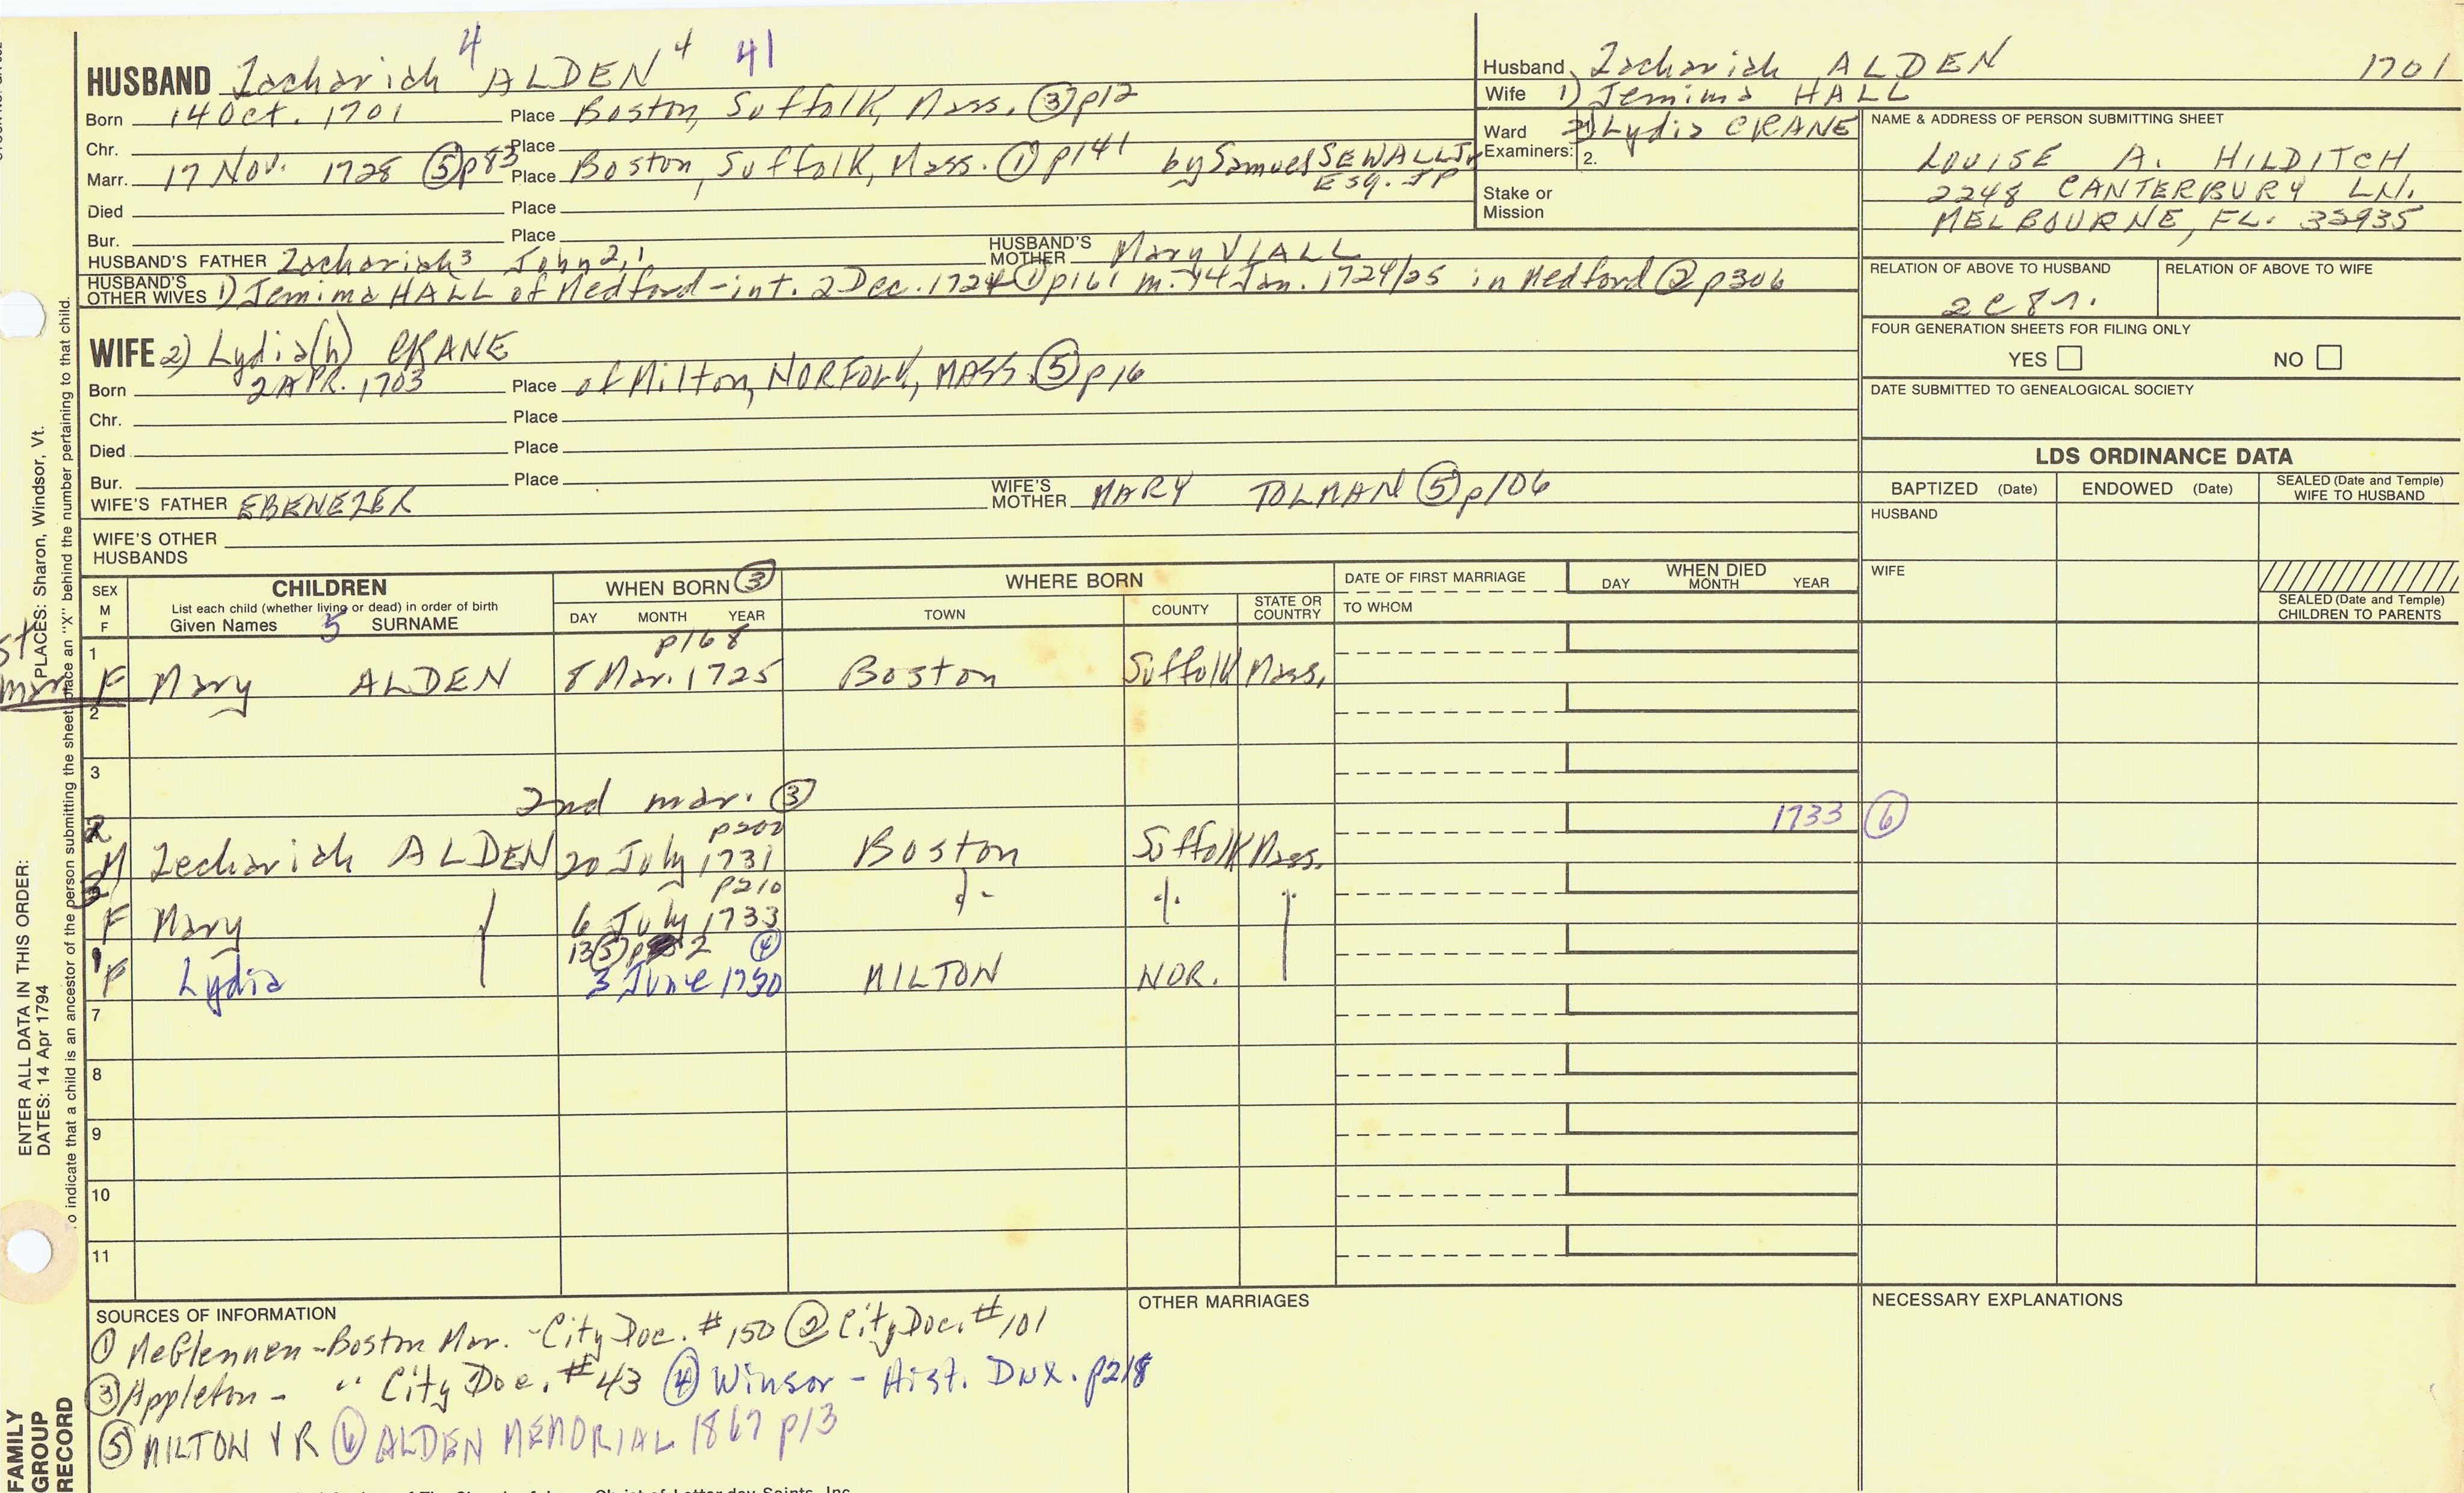 4 4 41
HUSBAND Zachariah ALDEN
Born 14 Oct. 1701 Place Boston, Suffolk, Mass. ③ p12
Chr. Place
Marr. 17 Nov. 1728 ⑤ p83 Place Boston, Suffolk, Mass. ① p141 by Samuel SEWALL Jr
Esq. JP
Died Place
Bur. Place
HUSBAND'S FATHER Zachariah3 John2,1 HUSBAND'S MOTHER Mary VIALL
HUSBAND'S OTHER WIVES 1) Jemima HALL of Medford-int. 2 Dec. 1724 ① p161 m. 14 Jan. 1724/25 in Medford ② p306
WIFE 2) Lydia(h) CRANE
Born 2 APR. 1703 Place of Milton, NORFOLK, MASS. ⑤ p16
Chr. Place
Died Place
Bur. Place
WIFE'S FATHER EBENEZER WIFE'S MOTHER MARY TOLMAN ⑤ p106
WIFE'S OTHER HUSBANDS
Husband Zachariah ALDEN 1701
Wife 1) Jemima HALL
2) Lydia CRANE
Ward
Examiners: 2.
Stake or
Mission
NAME & ADDRESS OF PERSON SUBMITTING SHEET
LOUISE A. HILDITCH
2248 CANTERBURY LN.
MELBOURNE, FL. 32935
RELATION OF ABOVE TO HUSBAND RELATION OF ABOVE TO WIFE
2C 8r.
FOUR GENERATION SHEETS FOR FILING ONLY
YES NO
DATE SUBMITTED TO GENEALOGICAL SOCIETY
LDS ORDINANCE DATA
BAPTIZED (Date) ENDOWED (Date) SEALED (Date and Temple) WIFE TO HUSBAND
HUSBAND
WIFE
SEALED (Date and Temple) CHILDREN TO PARENTS
SEX M F CHILDREN WHEN BORN ③ WHERE BORN DATE OF FIRST MARRIAGE WHEN DIED
List each child (whether living or dead) in order of birth
Given Names 5 SURNAME DAY MONTH YEAR TOWN COUNTY STATE OR COUNTRY TO WHOM DAY MONTH YEAR
st
mar
1 p168
F Mary ALDEN 8 Mar. 1725 Boston Suffolk Mass.
2
3
2nd mar. ③
1733 ⑥
2 p200
M Zechariah ALDEN 20 July 1731 Boston Suffolk Mass.
3 p210
F Mary 6 July 1733
④
F Lydia 3 June 1730 MILTON NOR.
7
8
9
10
11
SOURCES OF INFORMATION
① McGlennen-Boston Mar. -City Doc. #150 ② City Doc. #101
③ Appleton- " City Doc. #43 ④ Winsor - Hist. Dux. p218
⑤ MILTON VR ⑥ ALDEN MEMORIAL 1867 p13
OTHER MARRIAGES
NECESSARY EXPLANATIONS
PLACES: Sharon, Windsor, Vt.
ENTER ALL DATA IN THIS ORDER:
DATES: 14 Apr 1794
o indicate that a child is an ancestor of the person submitting the sheet, place an "X" behind the number pertaining to that child.
FAMILY
GROUP
RECORD